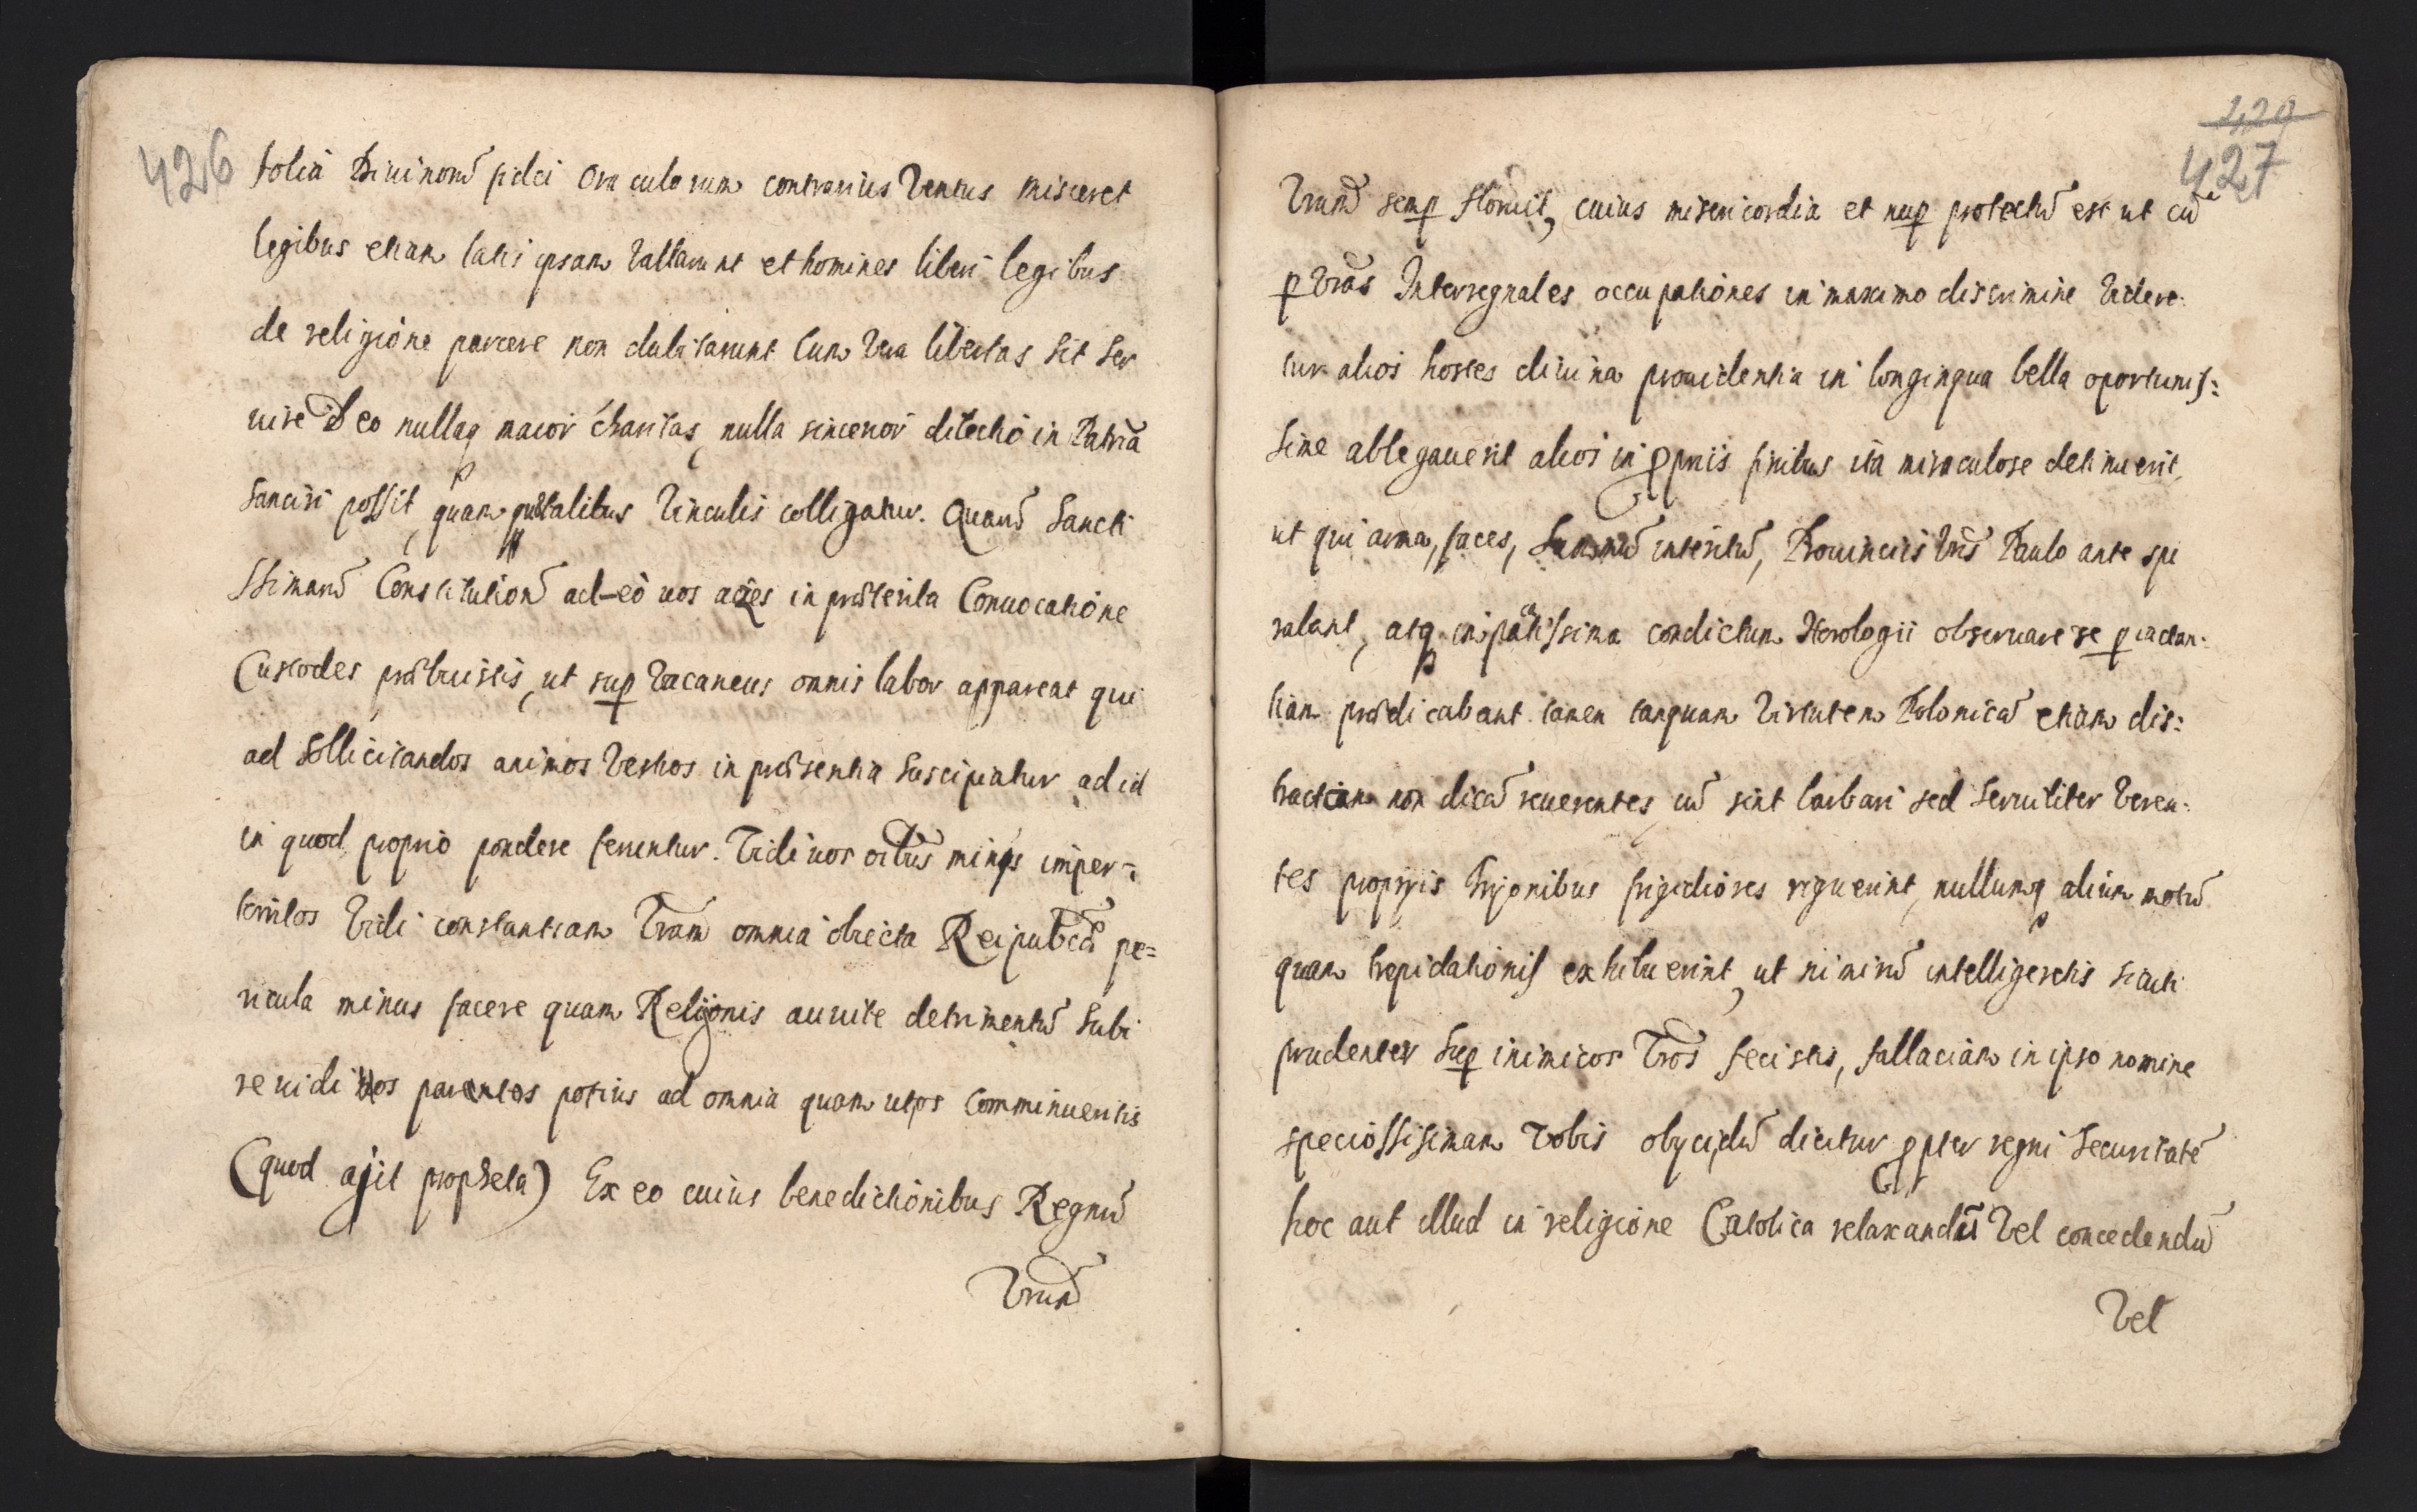 426
folia Diuinorũ fidei Oraculorum contrarius Ventus misceret
legibus etiam latis ipsam Vallarunt et homines liberi legibus
de religione parcere non dubitarunt Cum Vera libertas sit Ser
uire Deo nullaq maior charitas, nulla sincerior dilectio in Patria
Sanciri possit, quam quæ talibus Vinculis colligatur. Quarũ Sancti
ssimarũ Constitutionũ ad-eò uos acres in præterita Conuocatione
Custodes præbuistis, ut sup Vacaneus omnis labor appareat qui
ad Sollicitandos animos Vestros in præsentia Suscipiatur ad id
in quod proprio pondere feruntur. Vidi uos oĩbus minis imper-
territos Vidi constantiam Vram̃ omnia obiecta Reipublcæ pe=
ricula minus facere quam Religionis auitæ detrimentũ Subi
re uidi uos paratos potius ad omnia quam ut os comminueritis
(quod ajit propheta) Ex eo cuius benedictionibus Regnũ
Vrum̃
429
427
Vrum̃ semp floruit, cuius misericordia et nup protectũ est ut cũ
p Vrãs Interregnales occupationes in maximo discrimine Videre-
tur alios hostes diuina prouidentia in longinqua bella oportunis:
Sime ablegauerit alios in ppriis finibus ita miraculose detinuerit,
ut qui arma, faces, Summũ interitũ, Prouinciis Vrĩs Paulo ante spi
rabant, atq inpatissima condictum Horologii obseruare se p iactan-
tiam prædicabant tamen tanquam Virtutem Polonicã etiam dis:
tractam non dicã reuerentes cũ sint barbari sed Seruiliter Veren-
tes propriis Trionibus frigidiores riguerint, nullumq alium motũ
quam trepidationis exhibuerint, ut nimirũ intelligeretis sicuti
prudenter Sup inimicos Vrõs fecistis, fallaciam in ipso nomine
speciossisimam Vobis obyci, dũ dicitur ppter regni Securitatẽ
hoc aut illud in religione Catolica relaxandũ Vel concedendũ
Vel